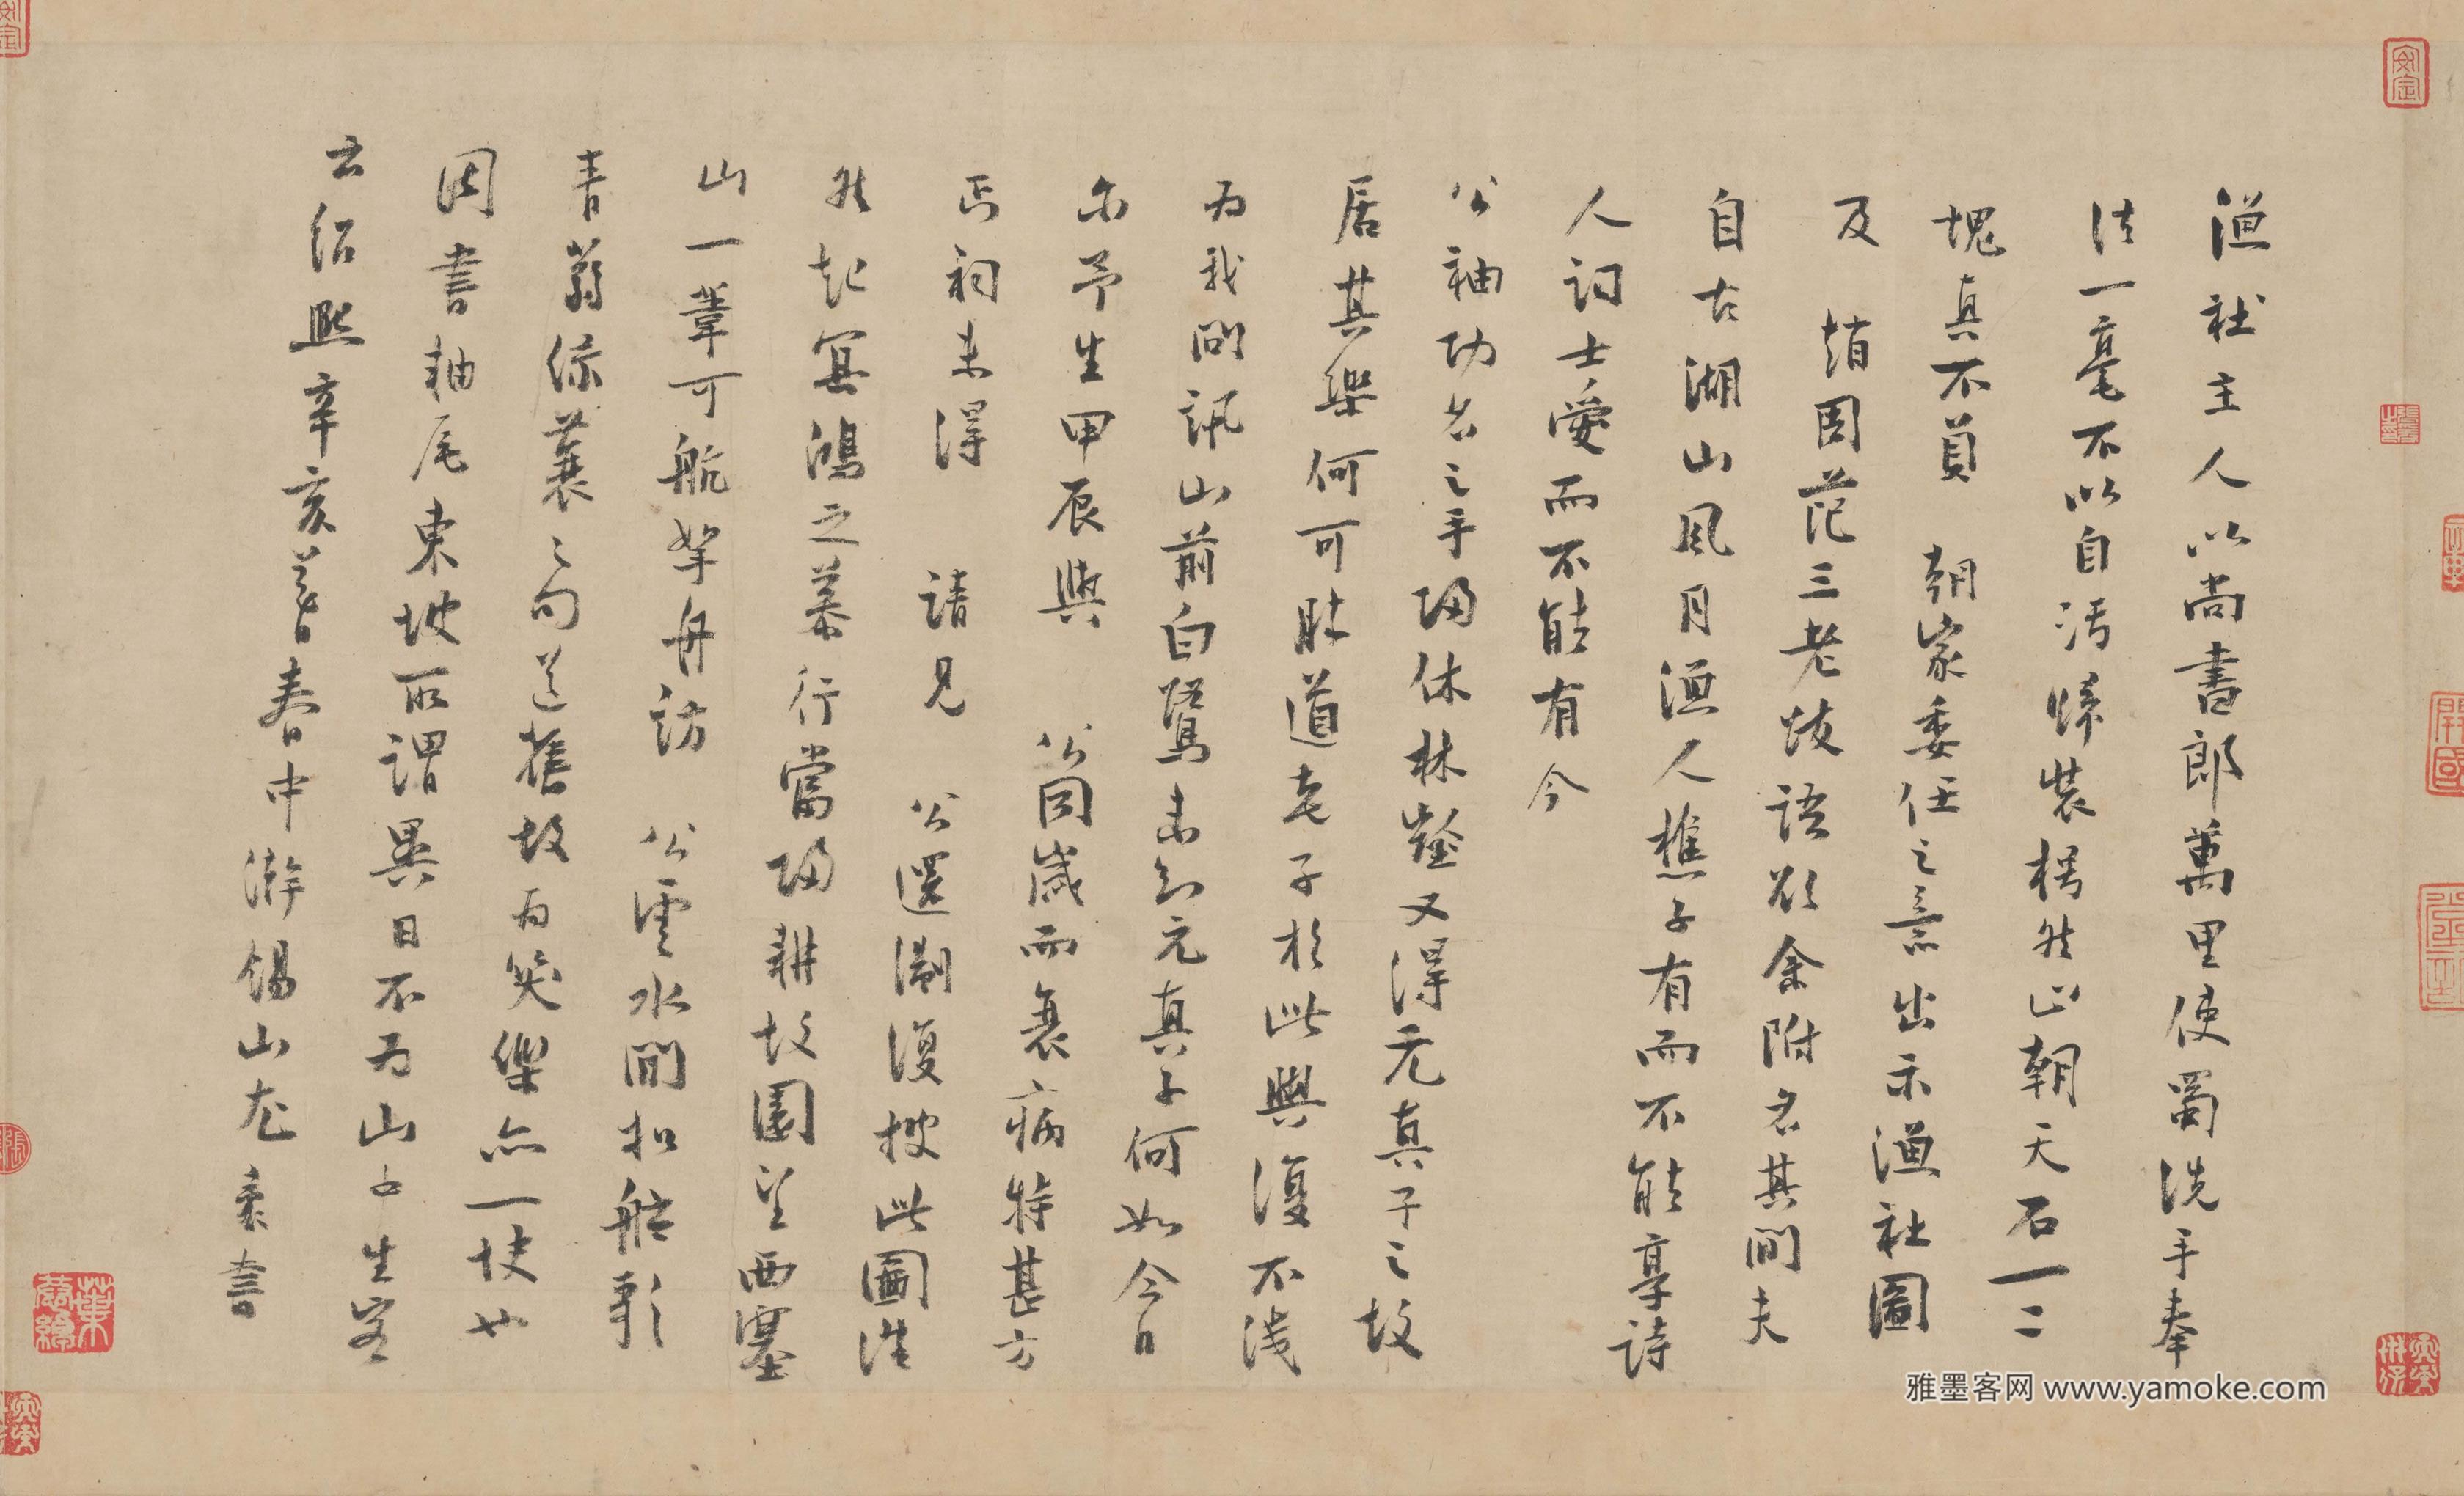 漁社主人以尚書郎萬里使蜀洗手奉
法一毫不以自污歸裝枵然止朝天石一二
塊真不負　朝家委任之意出示漁社圖
及　趙周范三老跋語欲余附名其間夫
自古湖山風月漁人樵子有而不能享詩
人詞士愛而不能有今
公袖功名之手歸休林壑又得元真子之故
居其樂何可勝道老子於此興復不淺
為我問訊山前白鷺未知元真子何如今日
尔予生甲辰與　公同歲而衰病特甚方
丐祠未得　請見　公還溯復披此圖浩
然起冥鴻之慕行當歸耕故園望西塞
山一葦可航拏舟訪　公雲水間扣舷歌
青蒻綠蓑之句道舊故為笑樂亦一快也
因書軸尾東坡所謂異日不為山中生客
云紹熙辛亥暮春中澣錫山尤袤書
雅墨客网 www.yamoke.com